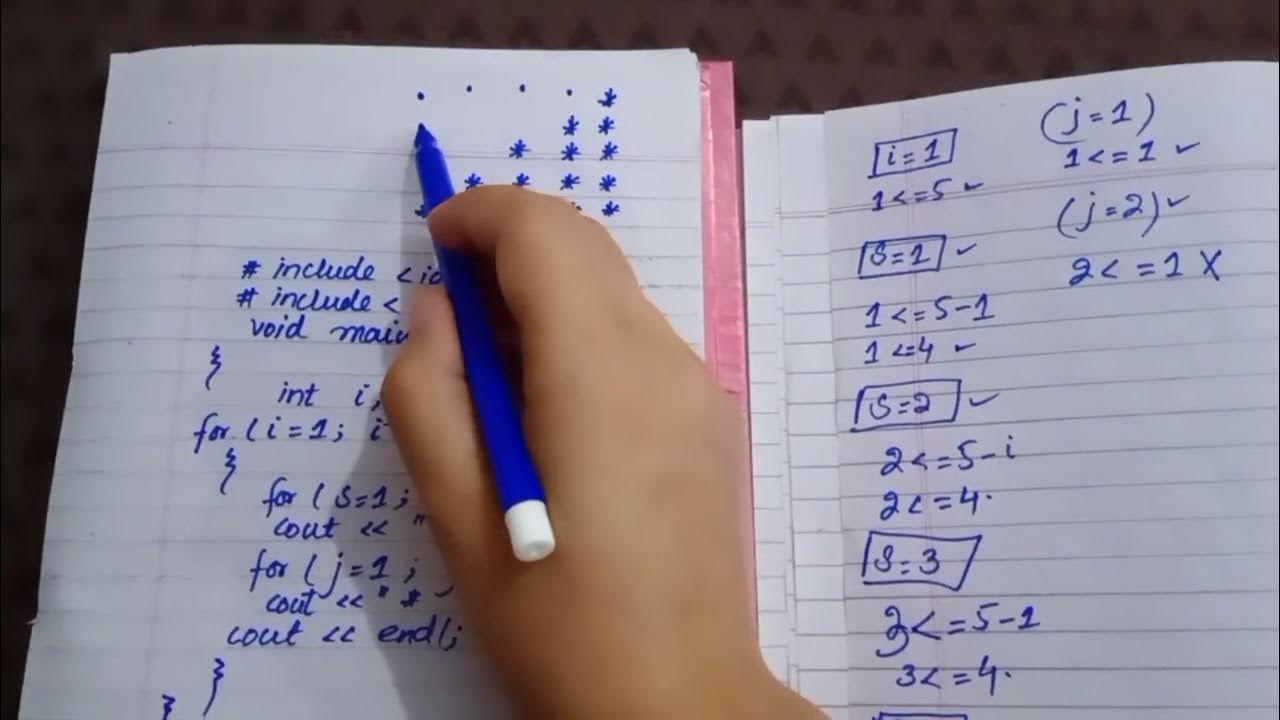 . . . . *
* *
* * *
* * * *
*
# include <
# include <
void
}
int i,
for (i=1;
{
for ( s=1;
cout << "
for ( j=1 ;
cout << " *
cout << endl;
}
}
i=1
1<=5 ✓
s=1 ✓
1<=5-1
1<=4 ✓
s=2 ✓
2<=5-i
2<=4.
s=3
3<=5-1
3<=4.
(j=1)
1<=1 ✓
(j=2) ✓
2<=1 X